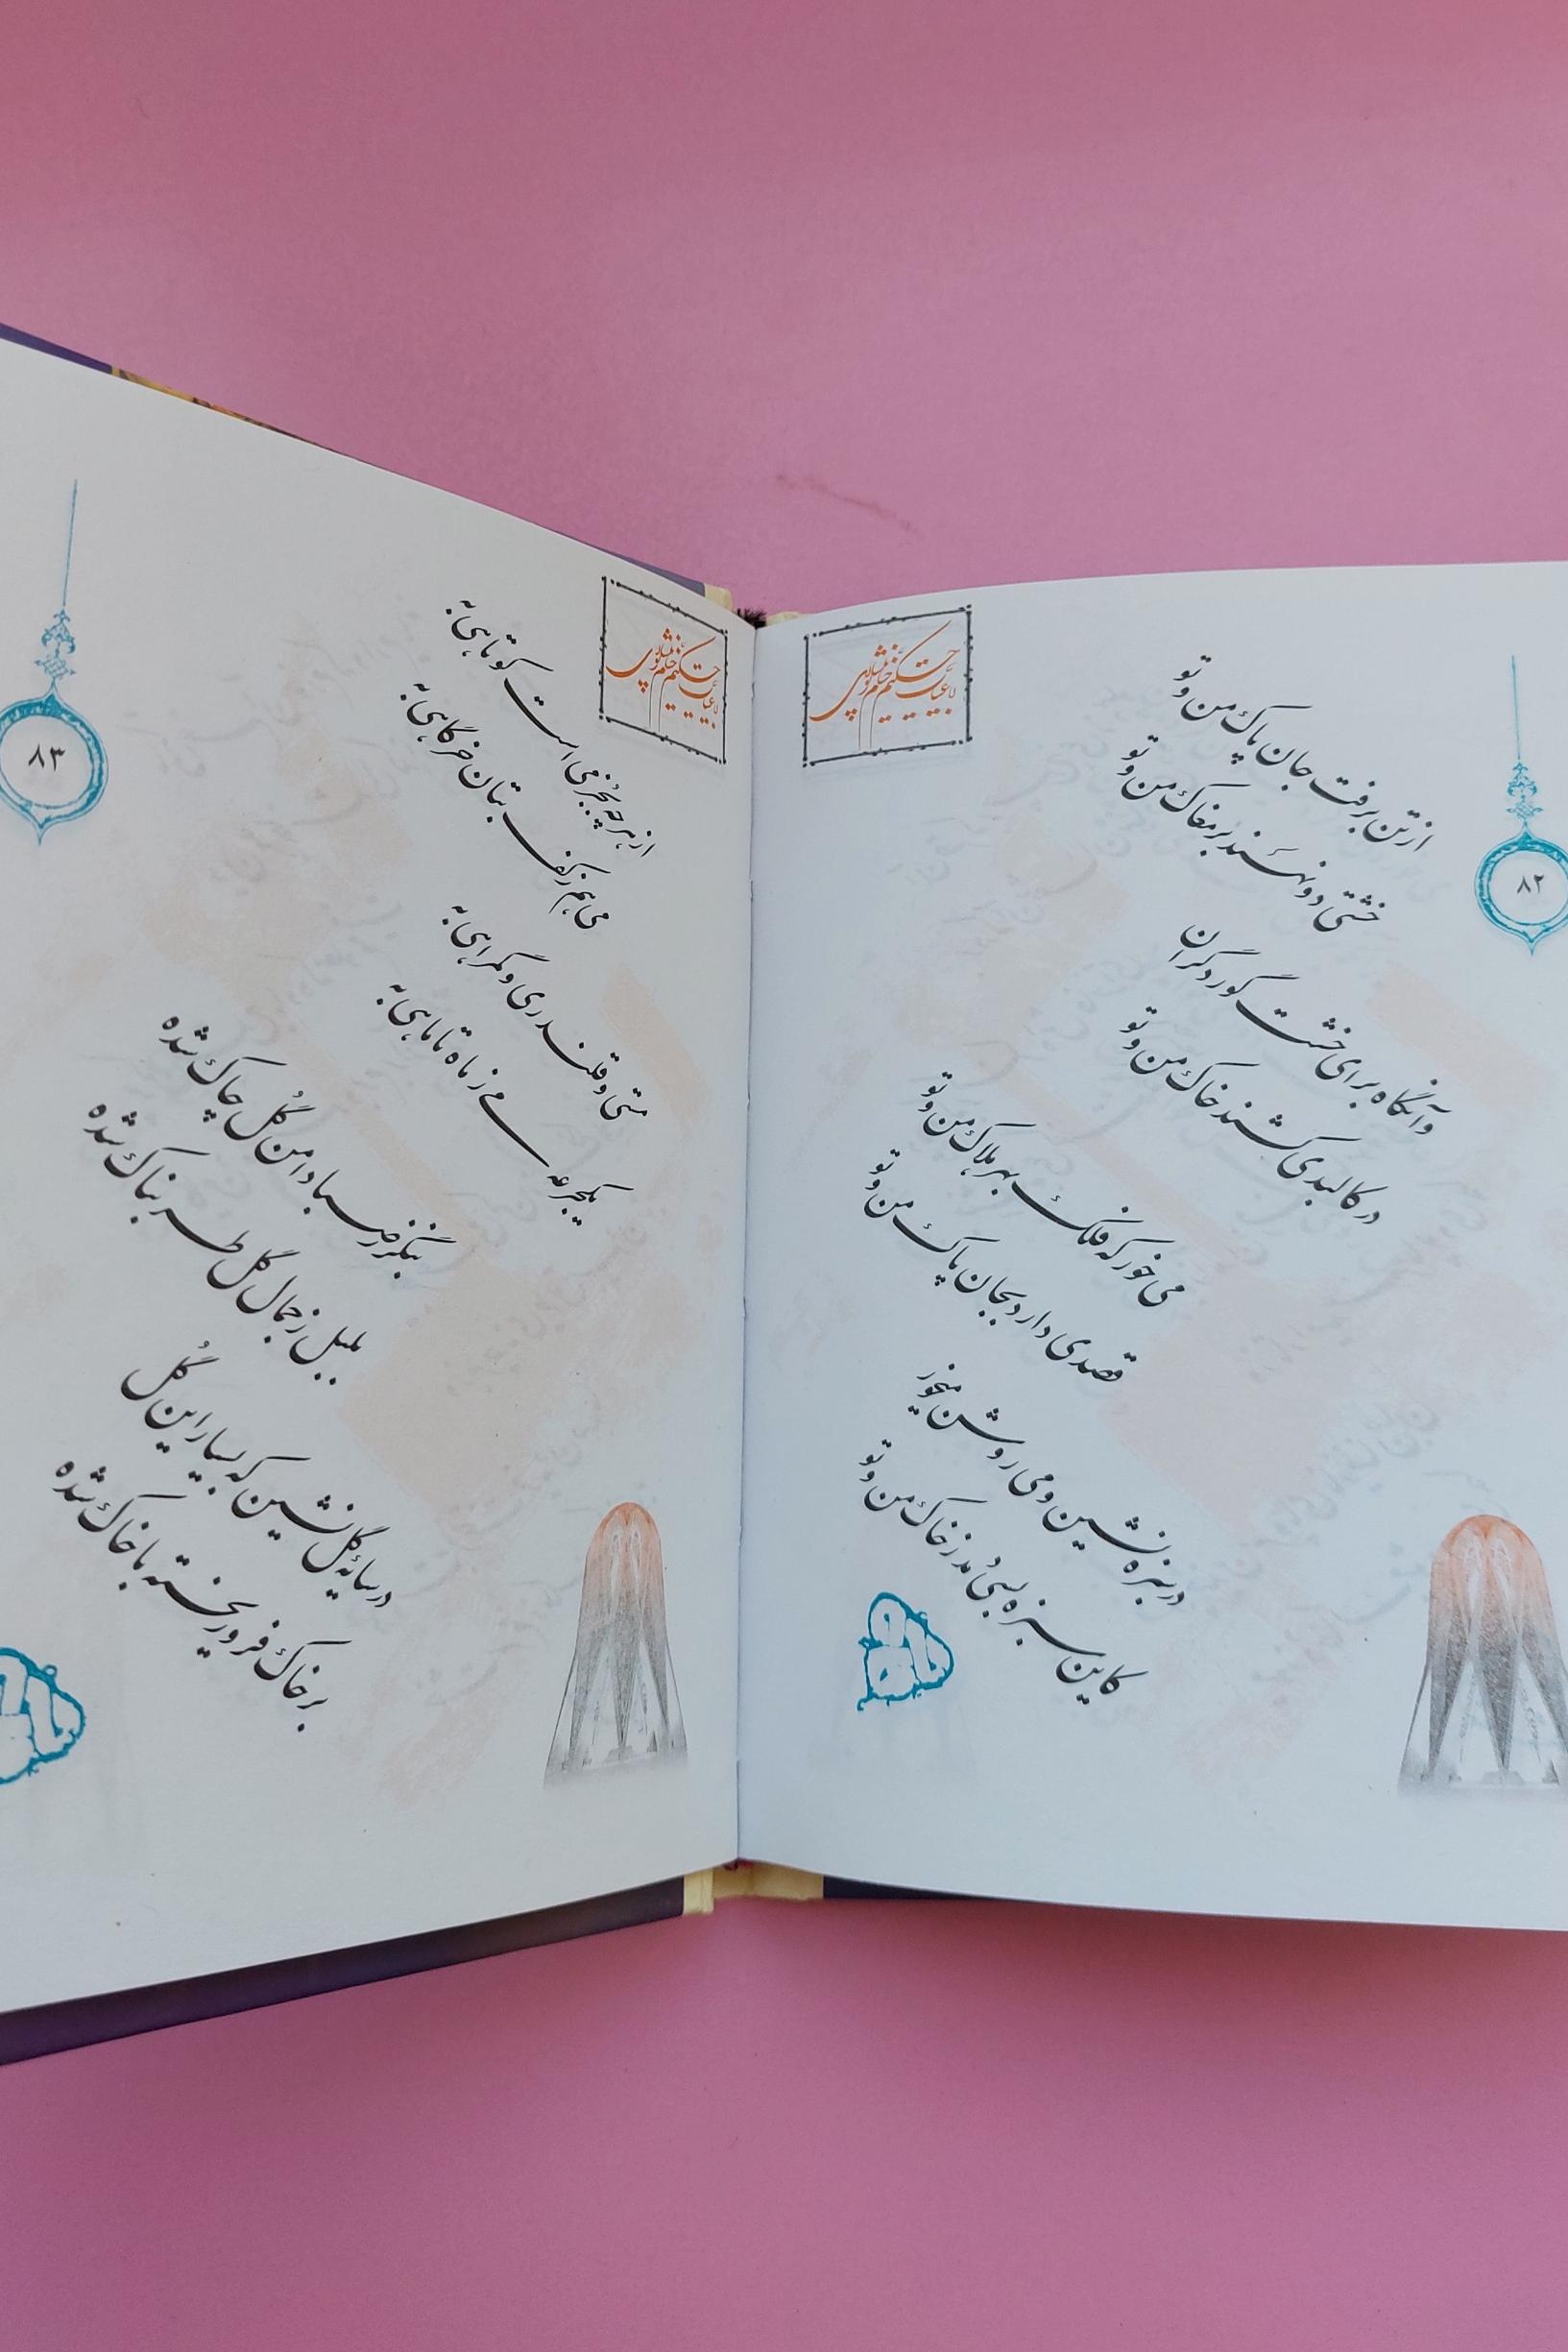 رباعیات حکیم خیام نیشابوری
۸۲
از تن برفت جان پاک من و تو
خشتی دو نهند بر مغاک من و تو
وآنگاه برای خشت گور دگران
در کالبدی کشند خاک من و تو
می خور که فلک بهر هلاک من و تو
قصدی دارد بجان پاک من و تو
در سبزه نشین و می روشن میخور
کاین سبزه بسی دمد ز خاک من و تو
رباعیات حکیم خیام نیشابوری
۸۳
از هر چه بجز می است کوتاهی به
می هم ز کف بتان خرگاهی به
مستی و قلندری و گمراهی به
یک جرعه می ز ماه تا ماهی به
بنگر ز صبا دامن گل چاک شده
بلبل ز جمال گل طربناک شده
در سایه گل نشین که بسیار این گل
بر خاک فرو ریخته با خاک شده